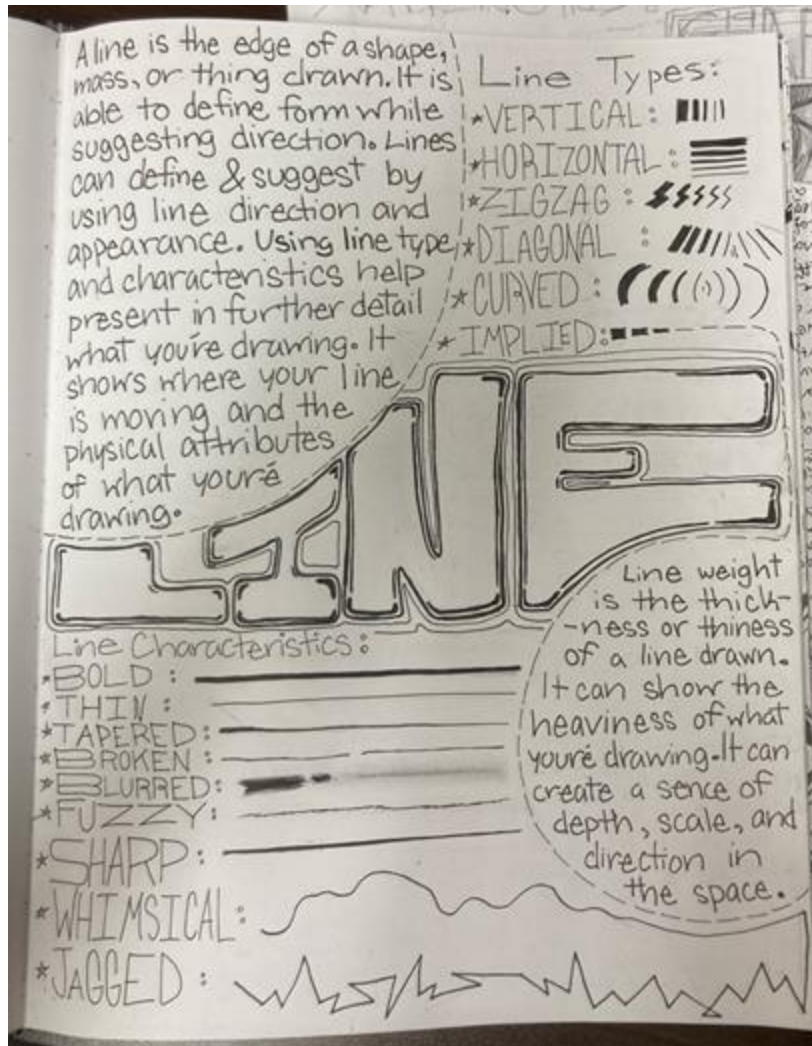 A line is the edge of a shape,
mass, or thing drawn. It is
able to define form while
suggesting direction. Lines
can define & suggest by
using line direction and
appearance. Using line type
and characteristics help
present in further detail
what you're drawing. It
shows where your line
is moving and the
physical attributes
of what you're
drawing.
Line Types:
*VERTICAL:
*HORIZONTAL:
*ZIGZAG:
*DIAGONAL:
*CURVED:
*IMPLIED:
LINE
Line Characteristics:
*BOLD:
*THIN:
*TAPERED:
*BROKEN:
*BLURRED:
*FUZZY:
*SHARP:
*WHIMSICAL:
*JAGGED:
Line weight
is the thick-
-ness or thiness
of a line drawn.
It can show the
heaviness of what
you're drawing. It can
create a sence of
depth, scale, and
direction in
the space.